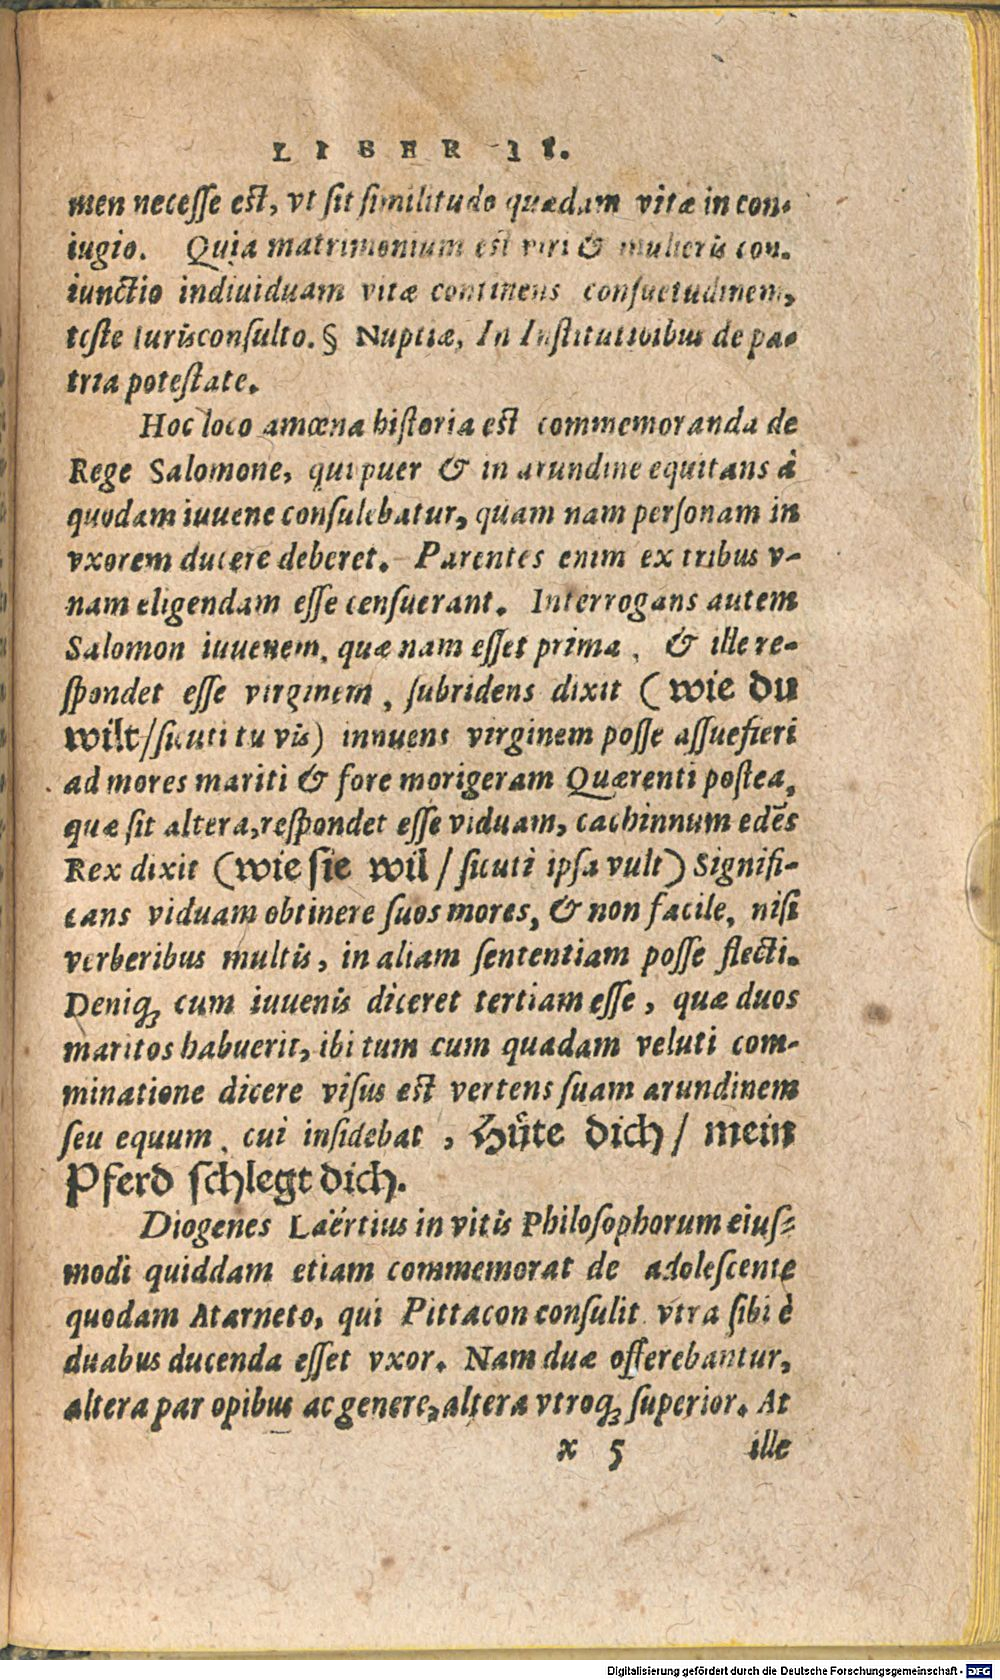 LIBER II.
men necesse est, vt sit similitudo quædam vitæ in con-
iugio. Quia matrimonium est viri & mulieris con-
iunctio indiuiduam vitæ continens consuetudinem,
teste Iurisconsulto. § Nuptiæ, In Institutioibus de pa-
tria potestate.
Hoc loco amœna historia est commemoranda de
Rege Salomone, qui puer & in arundine equitans à
quodam iuuene consulebatur, quam nam personam in
vxorem ducere deberet. Parentes enim ex tribus v-
nam eligendam esse censuerant. Interrogans autem
Salomon iuuenem, quæ nam esset prima, & ille re-
spondet esse virginem, subridens dixit (wie du
wilt/sicuti tu vis) innuens virginem posse assuefieri
ad mores mariti & fore morigeram Quærenti postea,
quæ sit altera, respondet esse viduam, cachinnum edẽs
Rex dixit (wie sie wil / sicuti ipsa vult) Signifi-
cans viduam obtinere suos mores, & non facile, nisi
verberibus multis, in aliam sententiam posse flecti.
Deniq; cum iuuenis diceret tertiam esse, quæ duos
maritos habuerit, ibi tum cum quadam veluti com-
minatione dicere visus est vertens suam arundinem
seu equum, cui insidebat, Hüte dich / mein
Pferd schlegt dich.
Diogenes Laërtius in vitis Philosophorum eius-
modi quiddam etiam commemorat de adolescente
quodam Atarneto, qui Pittacon consulit vtra sibi è
duabus ducenda esset vxor. Nam duæ offerebantur,
altera par opibus ac genere, altera vtroq; superior. At
x 5 ille
Digitalisierung gefördert durch die Deutsche Forschungsgemeinschaft - DFG